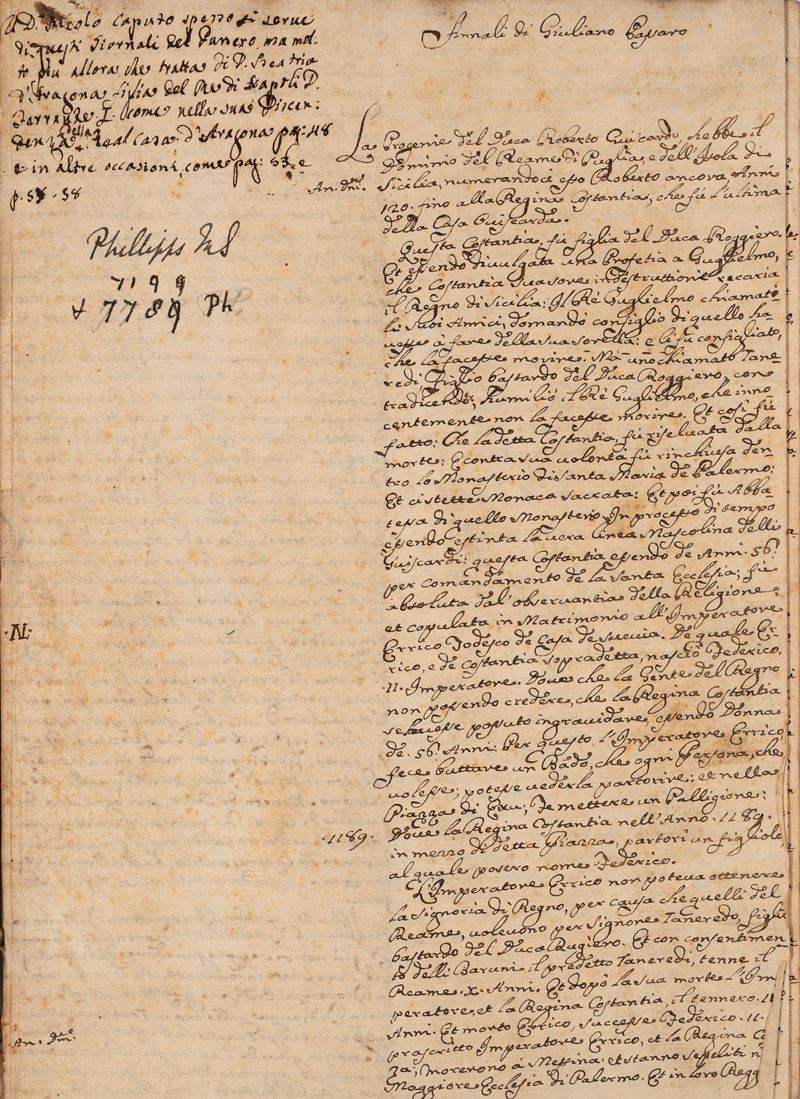 Il D. Nicolò Caputo spesso si serve
di questi Giornali del Passero, ma mol-
to più allora, che tratta di D. Beatrice
d'Aragona figia del Re di Napoli D.
Ferrante I. come nella sua Discen:
denza della Real Casa d'Aragona pag: 48
e in altre occasioni, come pag: 53, e
p. 58
Phillipps MS
7199
7789 Ph
Annali di Giuliano Passaro
La Progenie del Duca Roberto Guiscardo, hebbe il
Dominio del Reame di Puglia, e dell'Isola di
An. Dni. Sicilia, numerandoci esso Roberto ancora Anni
120. fino alla Regina Costantia, che fù l'ultima
della Casa Guiscarda.
Questa Costantia, fù figlia del Duca Roggiero.
Et essendo divulgata una Profetia a Guglielmo,
che Costantia sua sore in destruttione recaria
il Regno di Sicilia: Il Ré Guglielmo chiamati
li suoi Amici, domandò consiglio di quello ha-
vesse à fare della sua sorella: e li fù consigliato,
che la facesse morire. Mà uno chiamato Tane-
redi, figlio bastardo del Duca Roggiero, con
tradicendo, humiliò il Ré Guglielmo, che inno
centemente non la facesse morire. Et così fù
fatto: Che la detta Costantia, fù riseluata dalla
morte: E contra sua volontà fù rinchiusa den-
tro lo Monasterio di Santa Maria de Palermo:
Et ci stette Monaca sacrata: Et poi fù Abba-
tessa di quello Monastero. In processo di tempo
essendo estinta la vera linea Mascolina delli
Guiscardi: questa Costantia essendo de Anni. 56.
per comandamento de la Santa Ecclesia; fù
absoluta dal'observantia della Religione
et copulata in Matrimonio all'Imperatore
.N; Errico Todesco de Casa de Suevia. De quale Er-
rico, e de Costantia sopradetta, nasciò Federico.
.II. Imperatore. Dove che la Gente del Regno
non possendo credere, che la Regina Costantia
se havesse possuto ingravidare, essendo Donna
de. 56. Anni: Per questo l'Imperatore Errico
fece buttare un Bando, che ogni Persona, che
volesse; potesse vederla partorire: et nella
Piazza di fe mettere un Palligione:
.1189. Dove la Regina Costantia nell'Anno. 1189.
in mezzo di detta Piazza, partorì un figliolo,
al quale posero nome Federico.
L'Imperatore Errico non poteva ottenere
la Signoria di Regno, per causa che quelli del
Reame, volevono per Signore Taneredo, figlio
bastardo del Duca Rugiero. Et con consentimen
to delli Baruni il predetto Taneredi, tenne il
Reame .X. Anni. Et dopò la sua morte l'Im
peratore, et la Regina Costantia, il tennero. II
An. Dni. Anni. Et morto Errico, successe Federico .II.
prascritto Imperatore Errico, et la Regina Co
za; morerono à Messina. et stanno sepeliti n
Maggiore Ecclesia di Palermo. Et in loro Regg